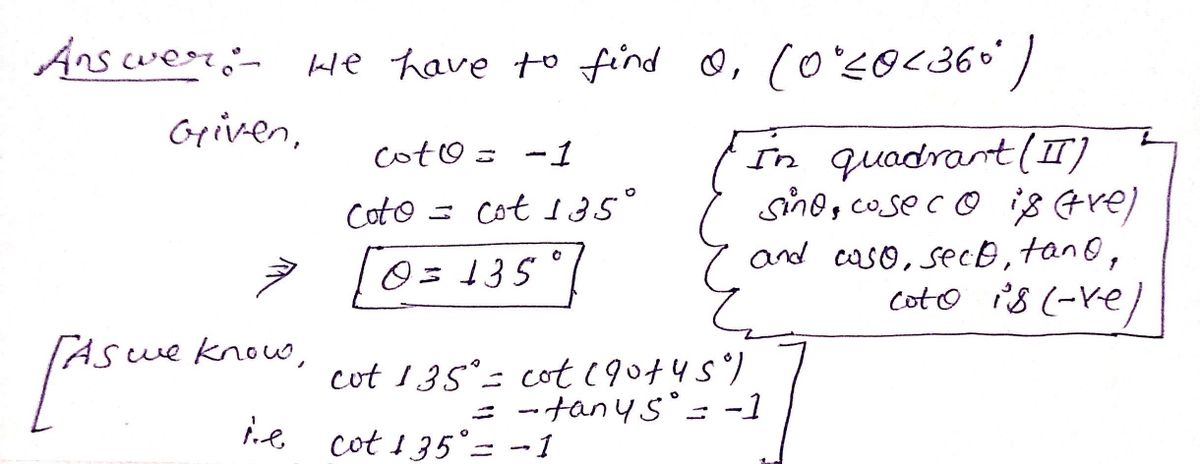 Answer:- We have to find θ, (0°≤θ<360°)
Given,
cotθ = -1
cotθ = cot 135°
⇒ θ = 135°
In quadrant (II)
sinθ, cosecθ is (+ve)
and cosθ, secθ, tanθ,
cotθ is (-ve)
[As we know,
cot 135° = cot (90+45°)
= -tan45° = -1
i.e cot 135° = -1]